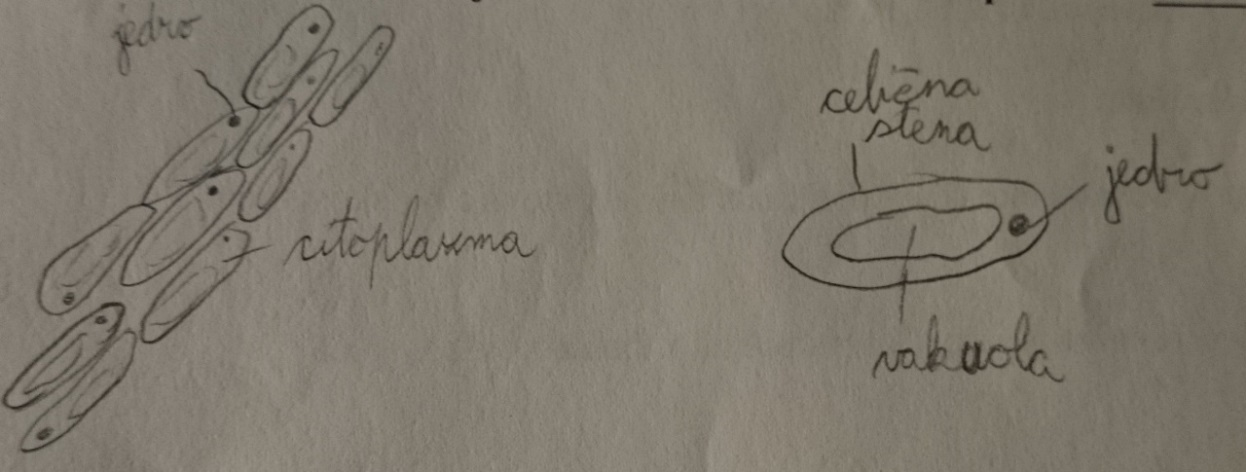 jedro
citoplazma
celična
stena
jedro
vakuola